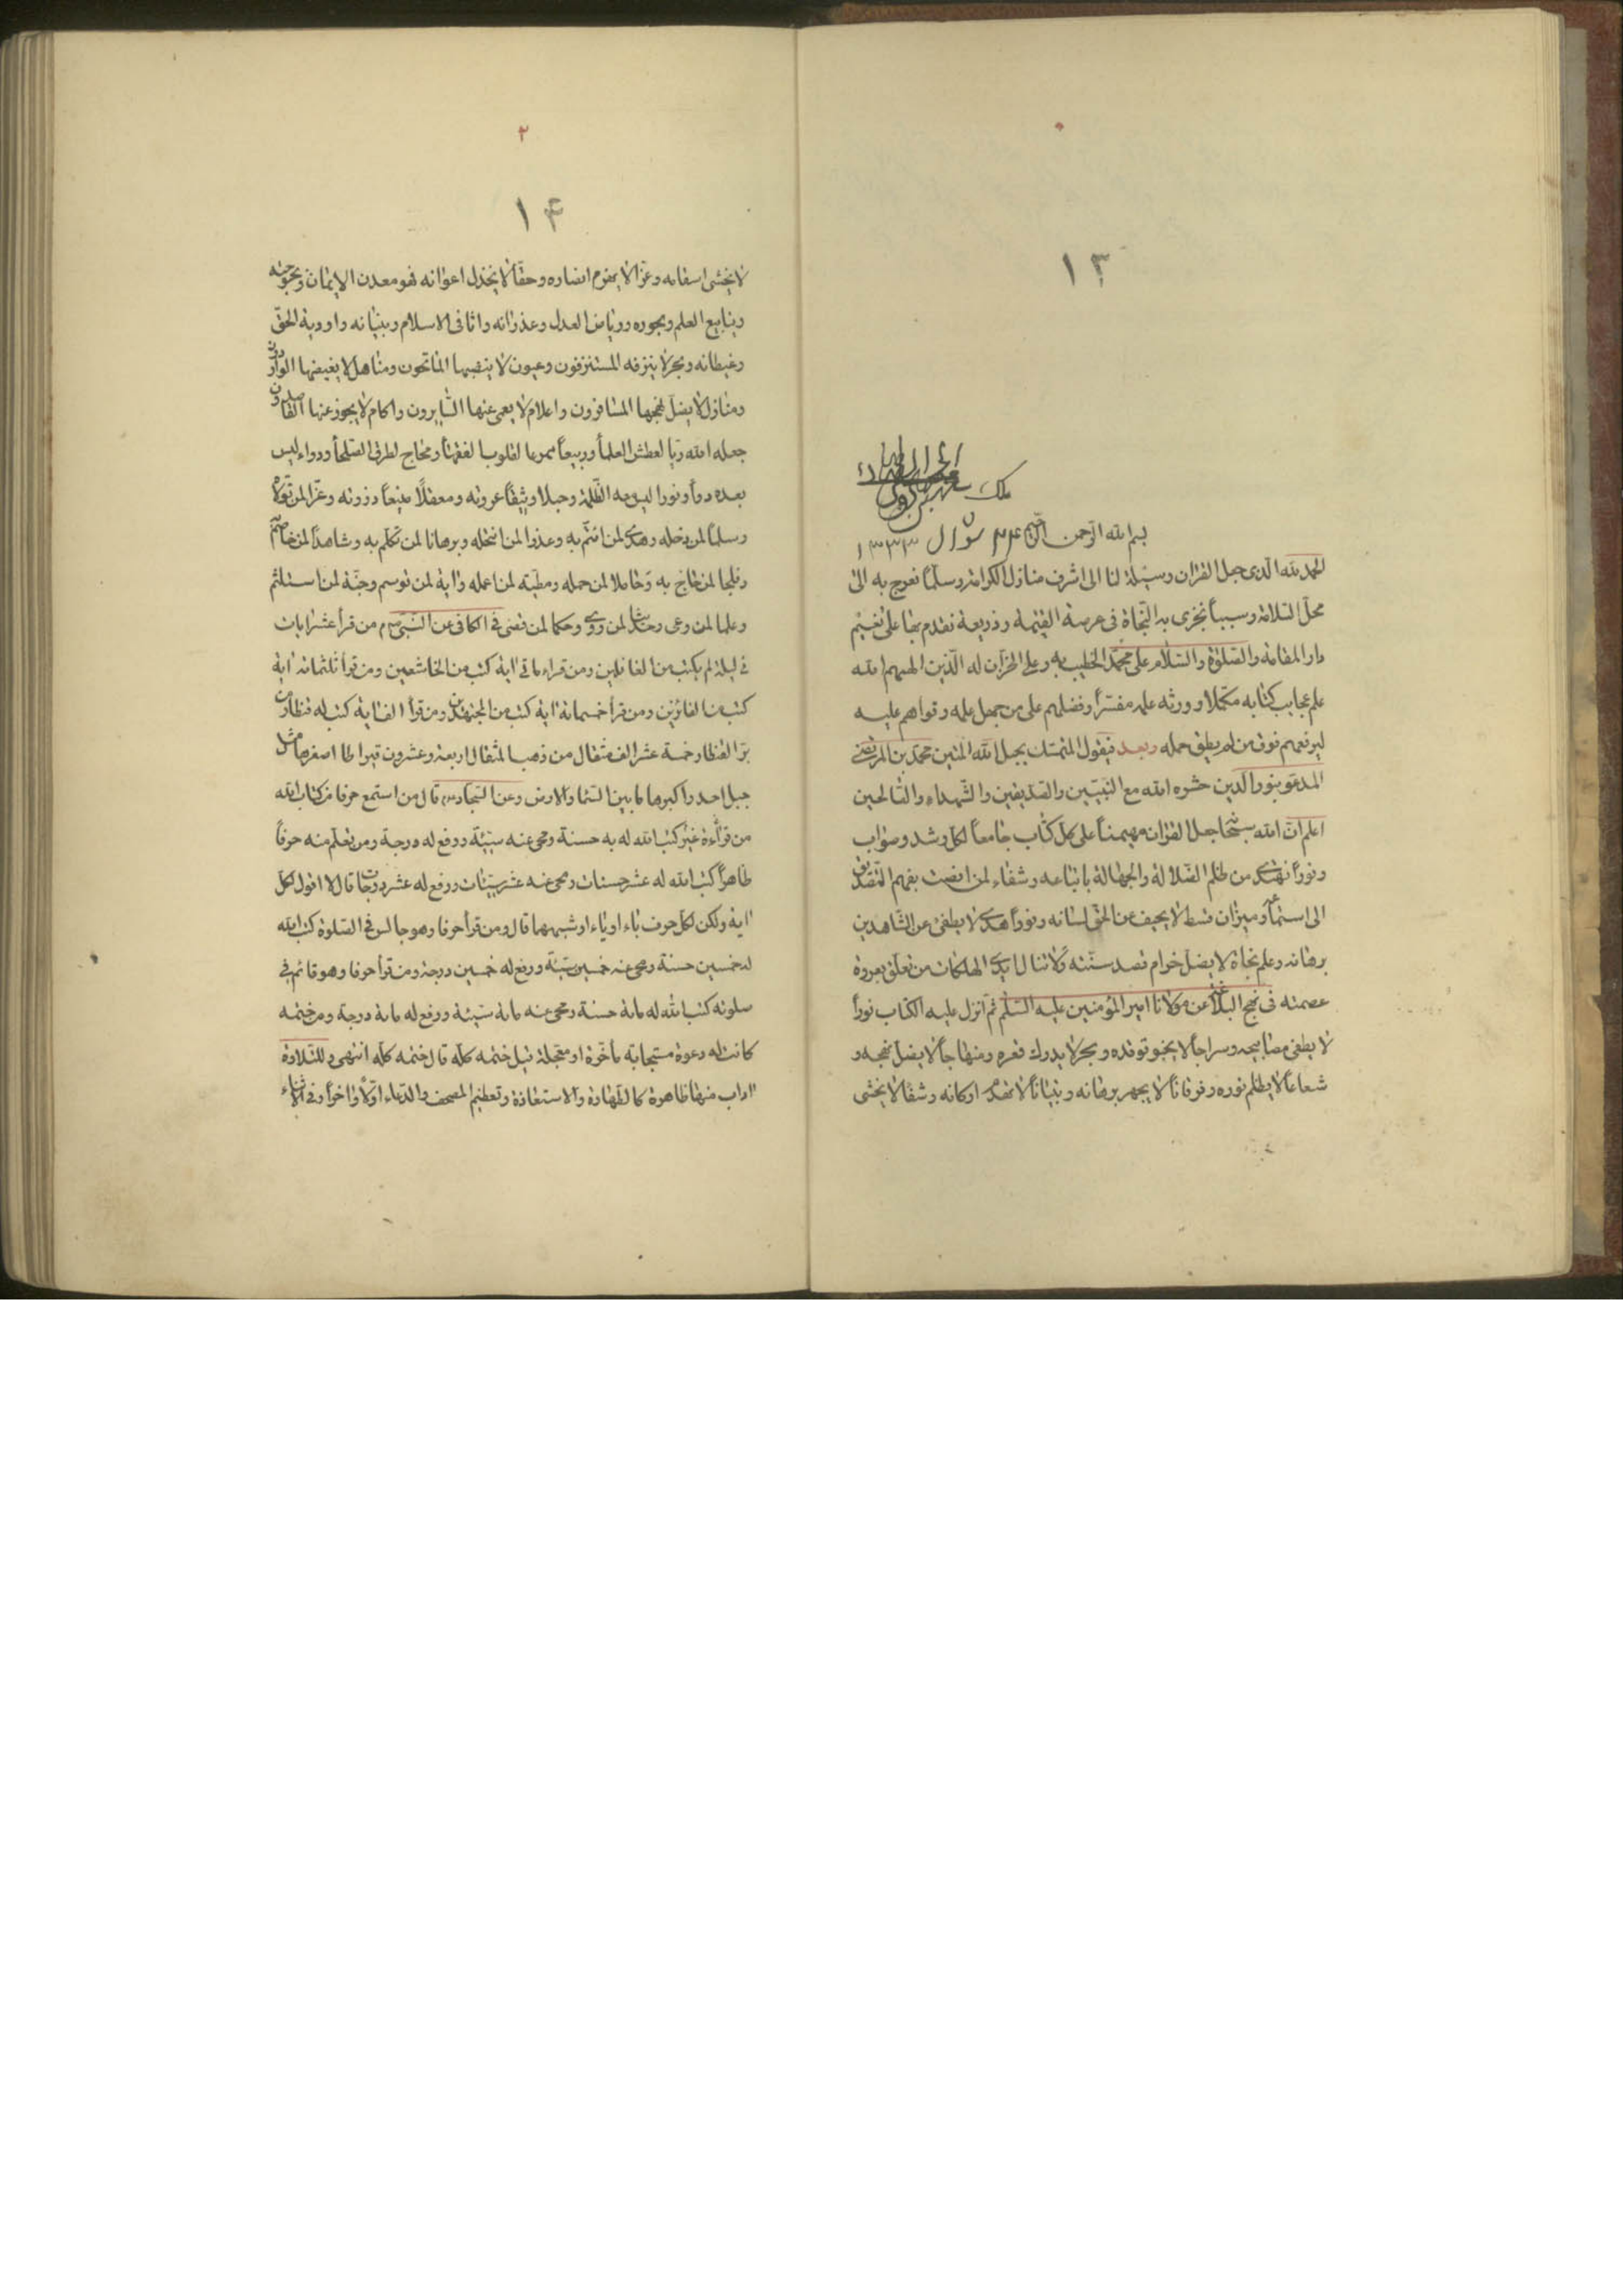 ١٣
ملك
بسم الله الرحمن الرحيم ٢٤ شوال ١٣٣٣
الحمد لله الذى جعل القران وسيلة لنا الى اشرف منازل الكرامة وسلّما نعرج به الى
محلّ السّلامة وسبباً نجزى به النّجاة فى عرصة القيٰمة وذريعة نقدم بها على نعيم
دار المقامة والصّلوة والسّلام على محمّد الخطيب به وعلى الخزّان له الّذين الهمهم الله
علم عجايب كتابه مكمّلا وورثه علمه مفسّراً وفضلهم على من جهل علمه وقواهم عليه
ليرفعهم فوق من لم يطق حمله وبعد فيقول المتمسّك بحبل الله المتين محمّد بن المرتضى
المدعوّ بنور الدين حشره الله مع النّبيّين والصّدّيقين والشّهداء والصّالحين
اعلم انّ الله سبحٰانه جعل القران مهيمناً على كلّ كتاب جامعاً لكلّ رشد وصواب
ونوراً نهتدى من ظلم الضّلالة والجهالة باتباعه وشفاء لمن انصت بفهم التّصديق
الى استماعه وميزان قسط لا يحيف عن الحقّ لسانه ونوراً هدى لا يطفئ عن الشّاهدين
برهانه وعلم نجاة لا يضلّ من ام قصد سنّته ولا تنال ايدى الهلكات من تعلّق بعروة
عصمته فى نهج البلاغة عن مولانا امير المؤمنين عليه السّلم ثم انزل عليه الكتاب نوراً
لا يطفى مصابيحه وسراجاً لا يخبو توقده وبحرا لا يدرك قعره ومنهاجاً لا يضلّ نهجه و
شعاعاً لا يظلم نوره وفرقاناً لا يجهر برهانه وبنياناً لا تهدم اركانه وشفا لا يخشى
٢
١٤
لا يخشى اسقامه وعزّا لا يهزم انصاره وحقّاً لا يخذل اعوانه فهو معدن الايمان وبحبوحته
وينابيع العلم وبحوره ورياض العدل وغدرانه واثافى الاسلام وبنيانه واودية الحقّ
وغيطانه وبحر لا ينزفه المستنزفون وعيون لا ينضبها الماتحون ومناهل لا يغيضها الواردون
ومنازل لا يضلّ نهجها المسافرون واعلام لا يعمى عنها السّايرون واكام لا يجوز عنها القاصدون
جعله الله ريّا لعطش العلمآء وربيعاً لقلوب الفقهآء ومحاج لطرق الصّلحآء ودواء ليس
بعده دوآء ونورا ليس معه الظّلمة وحبلا وثيقاً عروته ومعقلاً منيعاً ذروته وعزّا لمن تولاه
وسلماً لمن دخله وهدى لمن ائتمّ به وعذرا لمن انتحله وبرهانا لمن تكلّم به وشاهداً لمن خاصم به
وفلجا لمن حاجّ به وحاملا لمن حمله ومطيّة لمن اعمله واية لمن توسم وجنّة لمن استلئم
وعلما لمن وعى وحديثا لمن روى وحكما لمن قضى فى الكافى عن النّبىّ ص من قرأ عشر ايات
فى ليلة لم يكتب من الغافلين ومن قراء مائة اية كتب من الخاشعين ومن قرأ ثلثمائة اية
كتب من الفائزين ومن قرأ خمسمائة اية كتب من المجتهدين ومن قرأ الف اية كتب له قنطار من
برّ القنطار خمسة عشر الف مثقال من ذهب المثقال اربعة وعشرون قيراطا اصغرها مثل
جبل احد واكبرها ما بين السّمآء والارض وعن السّجاد ع قال من استمع حرفا من كتاب الله
من قرآءة غير كتب الله له به حسنة ومحى عنه سيّئة ورفع له درجة ومن تعلّم منه حرفاً
ظاهراً كتب الله له عشر حسنات ومحى عنه عشر سيّئات ورفع له عشر درجات قال لا اقول لكلّ
اية ولكن لكلّ حرف باء او ياء او شبههما قال ومن قرأ حرفا وهو جالس فى الصّلوة كتب الله
له خمسين حسنة ومحى عنه خمسين سيّئة ورفع له خمسين درجة ومن قرأ حرفا وهو قائم فى
صلوته كتب الله له مائة حسنة ومحى عنه مائة سيّئة ورفع له مائة درجة ومن ختمه
كانت له دعوة مستجابة مأخّرة او معجلة قيل ختمه كلّه قال ختمه كلّه انتهى وللتّلاوة
اداب منها ظاهرة كالطّهارة والاستعاذة وتعظيم المصحف والدّعاء اوّلاً واخراً وفى الاثناء